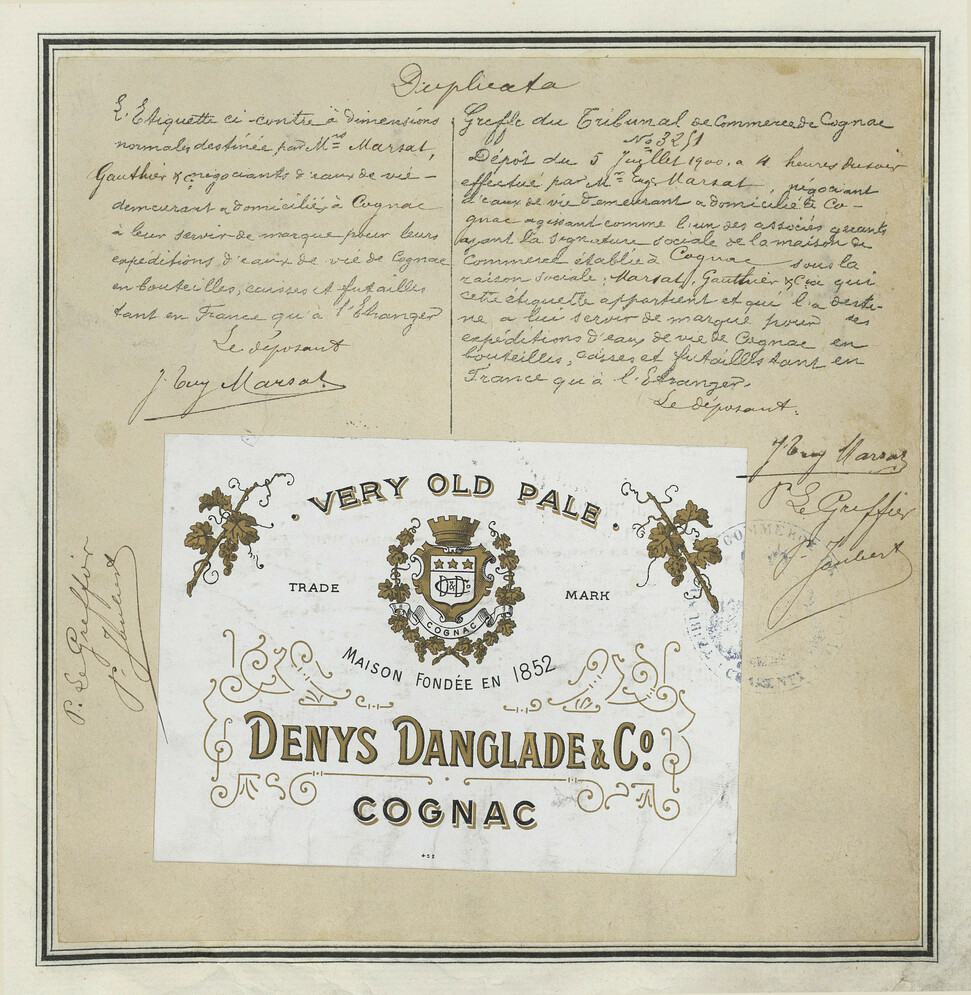 Duplicata
L'Etiquette ci-contre à dimensions
normales destinée par Mrs Marsat,
Gauthier & Cie négociants d'eaux de vie –
demeurant & domiciliés à Cognac
à leur servir de marque pour leurs
expéditions d'eaux de vie de Cognac
en bouteilles, caisses et futailles
tant en France qu'à l'Etranger
Le déposant
Marsat
Greffe du Tribunal de Commerce de Cognac
No 3251
Dépôt du 5 Juillet 1900, à 4 heures du soir
effectué par Mr Eug. Marsat, négociant
d'eaux de vie demeurant & domicilié à Co-
gnac agissant comme l'un des associés gerants
ayant la signature sociale de la maison de
Commerce établie à Cognac sous la
raison sociale: Marsat, Gauthier & Cie à qui
cette étiquette appartient et qui l'a desti-
né à lui servir de marque pour ses
expéditions d'eaux de vie de Cognac en
bouteilles, caisses et futailles tant en
France qu'à l'Etranger.
Le déposant.
Marsat
P. Le Greffier
J. Joubert
P. Le Greffier
J. Joubert
COMMERCE
TRIBUNAL
CHARENTE
VERY OLD PALE
TRADE MARK
DD&Co
COGNAC
MAISON FONDÉE EN 1852
DENYS DANGLADE & Co.
COGNAC